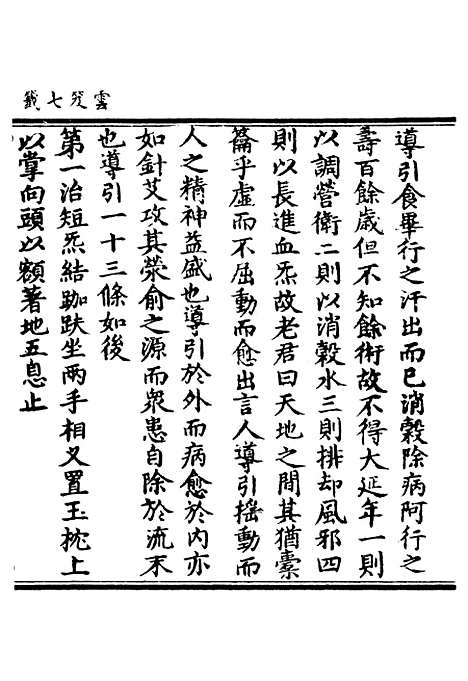 雲笈七籤
導引食畢行之汗出而已消穀除病阿行之
壽百餘歲但不知餘術故不得大延年一則
以調營衛二則以消穀水三則排却風邪四
則以長進血炁故老君曰天地之間其猶橐
籥乎虛而不屈動而愈出言人導引揺動而
人之精神益盛也導引於外而病愈於內亦
如針艾攻其滎俞之源而衆患自除於流末
也導引一十三條如後
第一治短炁結跏趺坐两手相叉置玉枕上
以掌向頭以額著地五息止